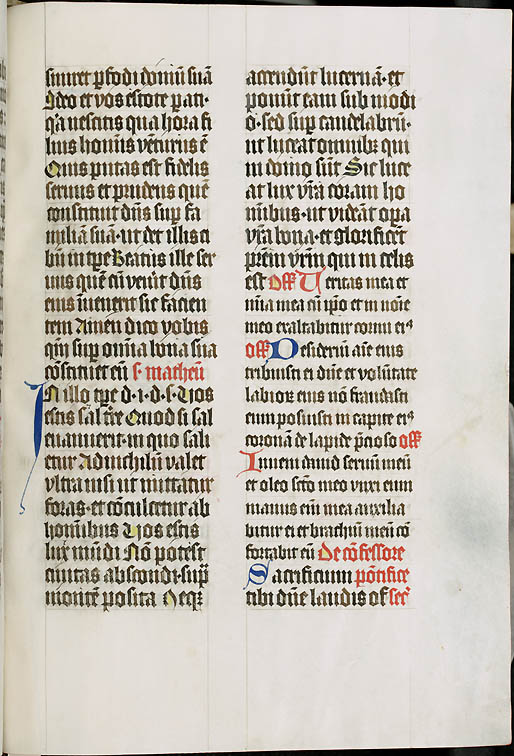 sineret perfodi domū suā
Ideo et vos estote parati·
q̄a nescitis qua hora fi
lius hominis vēturus ē
Quis putas est fidelis
seruus et prudens quē
constituit dn̄s sup̄ fa
miliā suā·ut det illis ci
bū in tp̄e Beatus ille ser
uus quē cū ven̄it dn̄s
eius inuenerit sic facien
tem Amen dico vobis
qm̄ sup̄ om̄ia bona sua
cōstituet eū s· matheū
IN illo tp̄e d·i·d·s· Vos
estis sal t̄re Quod si sal
euanuerit·in quo sali
etur Ad nichilū valet
vltra nisi ut mittatur
foras·et cōculcetur ab
hom̄ibus Vos estis
lux mūdi Nō potest
ciuitas abscondi·sup̄
montē posita Neqꝫ
accendūt lucernā·et
ponūt eam sub modi
o·sed sup̄ candelabrū·
ut luceat omnibꝫ qui
in domo sūt Sic luce
at lux vr̄a coram ho
minibus·ut videāt opa
vr̄a bona·et glorificēt
pr̄em vr̄m qui in celis
est off Veritas mea et
mīa mea cū ip̄o et in noīe
meo exaltabitur cornu eiꝰ
off Desideriū aīe eius
tribuisti ei dn̄e et volūtate
labioꝝ eius nō fraudasti
eum posuisti in capite eiꝰ
coronā de lapide p̄cioso off
Inueni dauid seruū meū
et oleo scto meo vnxi eum
manus eīm mea auxilia
bitur ei et brachiū meū cō
fortabit eū De cōfessore
Sacrificium pōtifice
tibi dn̄e laudis of secͬ